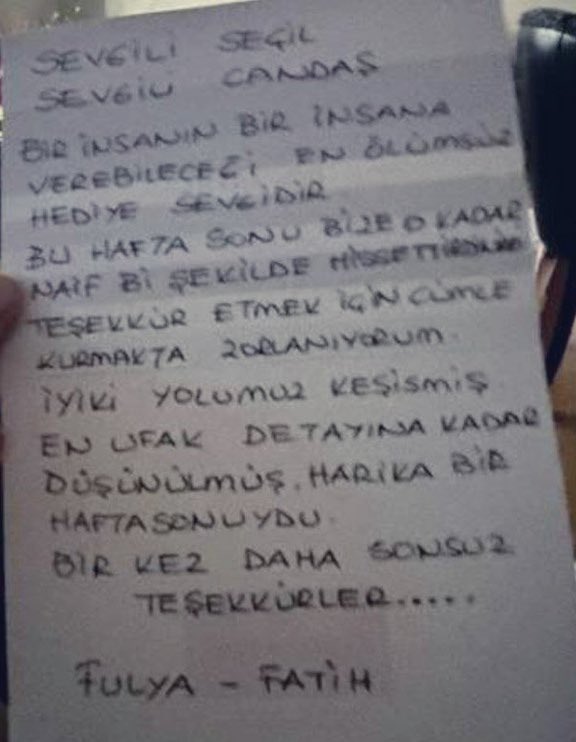 SEVGİLİ SEÇİL
SEVGİLİ CANDAŞ
BİR İNSANIN BİR İNSANA
VEREBİLECEĞİ EN ÖLÜMSÜZ
HEDİYE SEVGİDİR
BU HAFTA SONU BİZE O KADAR
NAİF Bİ ŞEKİLDE HİSSETTİRDİNİZ
TEŞEKKÜR ETMEK İÇİN CÜMLE
KURMAKTA ZORLANIYORUM.
İYİKİ YOLUMUZ KEŞİSMİŞ
EN UFAK DETAYINA KADAR
DÜŞÜNÜLMÜŞ. HARİKA BİR
HAFTASONUYDU.
BİR KEZ DAHA SONSUZ
TEŞEKKÜRLER.....
FULYA - FATİH